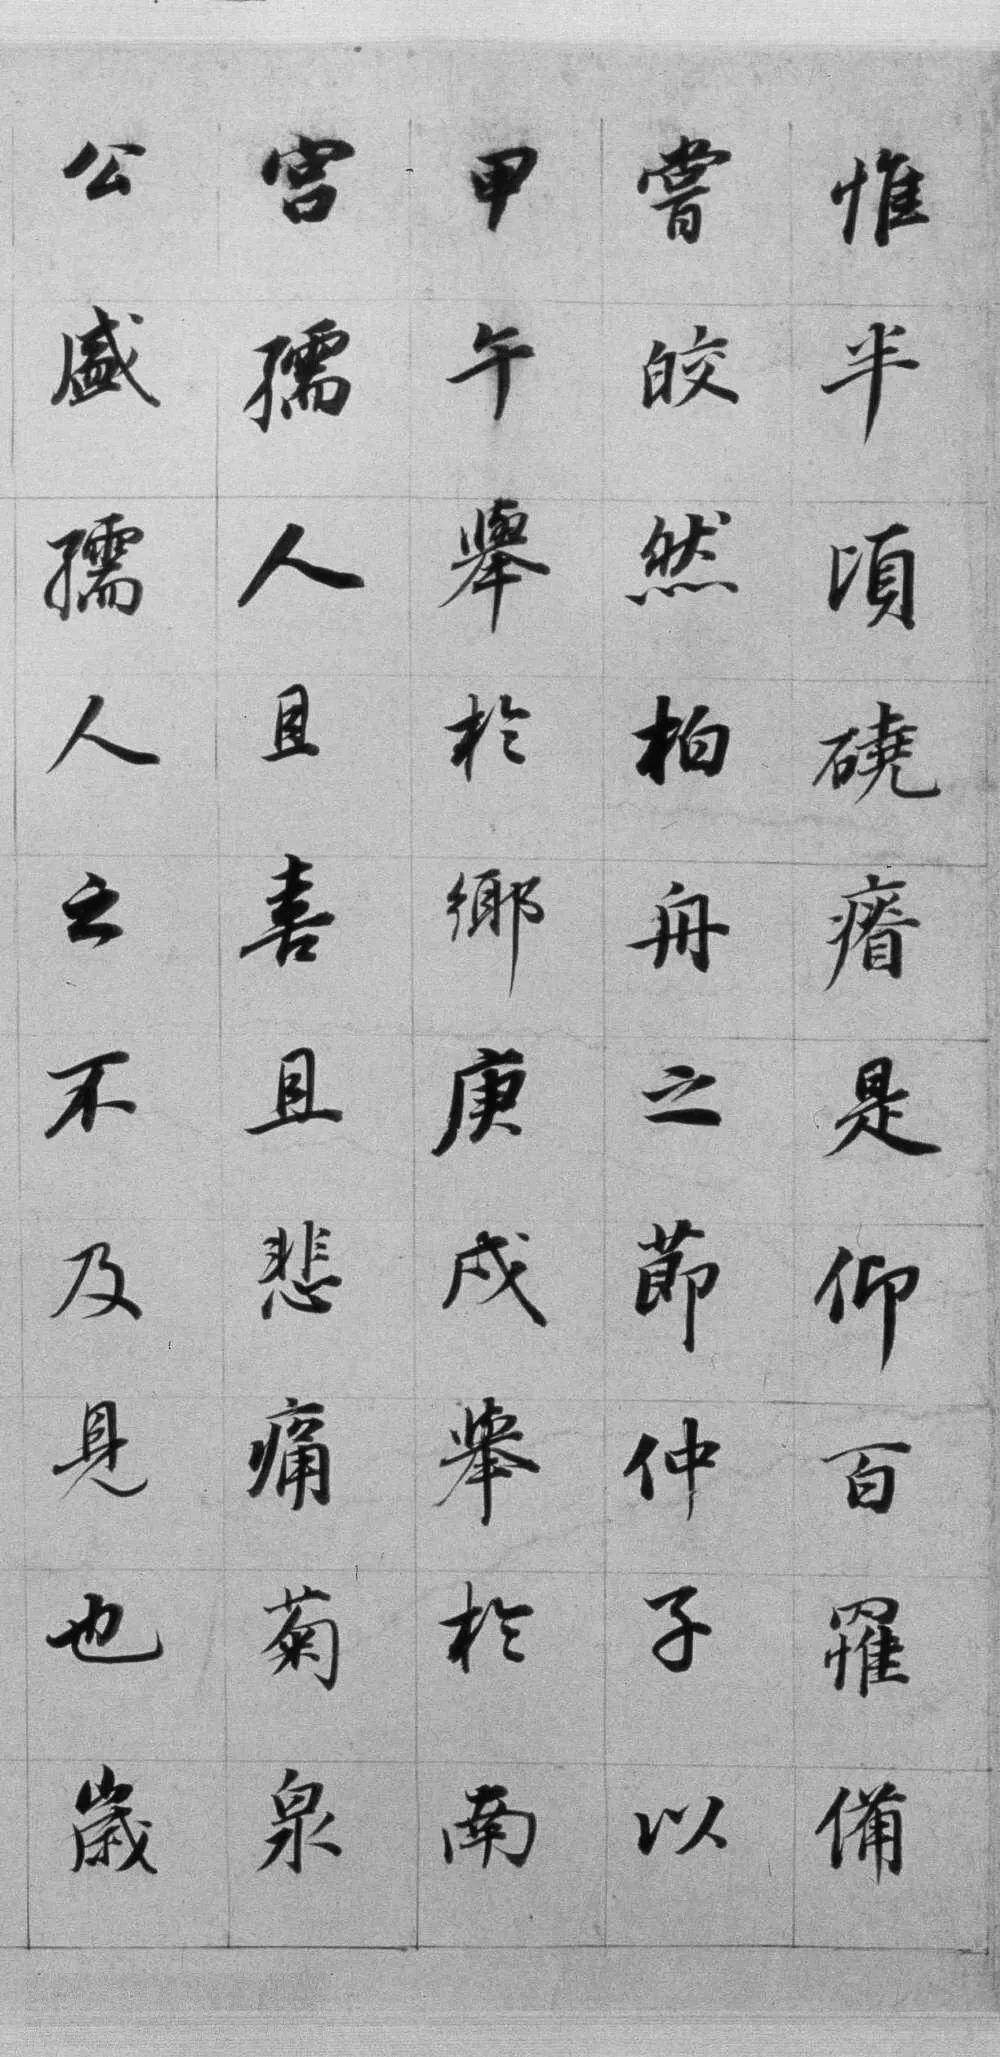 惟半頃磽瘠是仰百罹備
嘗皎然柏舟之節仲子以
甲午舉於鄉庚戌舉於南
宮孺人且喜且悲痛菊泉
公盛孺人之不及見也歲